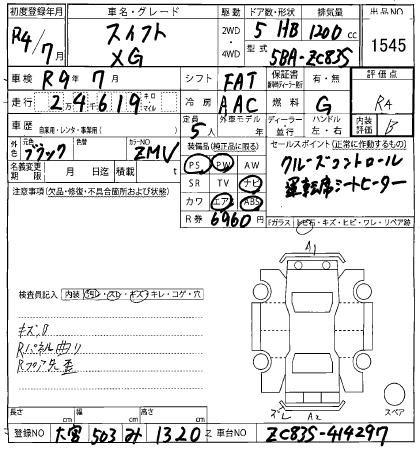 初度登録年月 車名・グレード 駆動 ドア数・形状 排気量 出品NO
R4/7月 スイフト XG 2WD・4WD 5 HB 1200 cc 1545
型式 5BA-ZC83S
車検 R9年7月 シフト FAT 保証書 有・無 評価点
走行 24619 キロ マイル 冷房 AAC 燃料 G RA
車歴 自家用・レンタ・事業用( ) 定員 5人 外車モデル 年 ディーラー 並行 ハンドル 左・右 内装評価 B
外色 元色 ブラック 色替 カラーNO ZMV 装備品(純正品に限る) セールスポイント(正常に作動するもの)
名義変更期限 月 日迄 積載 t PS PW AW クルーズコントロール
注意事項(欠品・修復・不具合箇所および状態) SR TV ナビ 運転席シートヒーター
カワ エアB ABS
R券 6960円 Fガラス(トビ石・キズ・ヒビ・ワレ・リペア跡)
A1
検査員記入 内装(汚れ・スレ・キズ・キレ・コゲ・穴)
キズ凹
Rパネル曲り
Rフロア先歪
長さ cm 幅 cm 高さ cm ズレ A2 スペア
登録NO 大宮 503 み 1320 車台NO ZC83S-414297